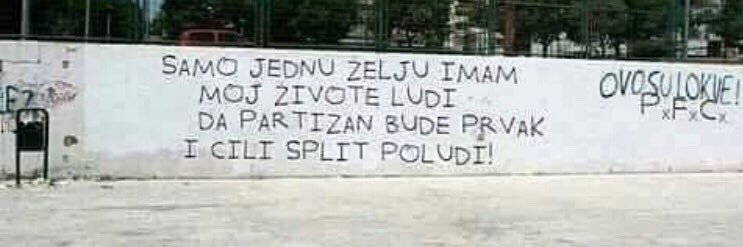 SAMO JEDNU ŽELJU IMAM
MOJ ŽIVOTE LUDI
DA PARTIZAN BUDE PRVAK
I CILI SPLIT POLUDI!
OVO SU LOKVE!
PxFxCx